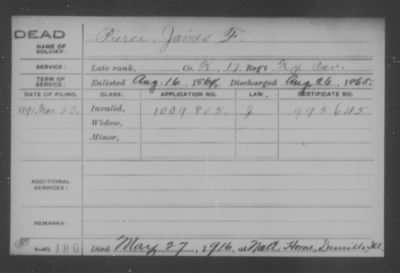 DEAD
NAME OF SOLDIER:
Pierce, James F.
SERVICE:
Late rank, Co. K, 17 Reg't Ky. Cav.
TERM OF SERVICE:
Enlisted Aug. 16, 1864, Discharged Aug 26, 1865.
DATE OF FILING. CLASS. APPLICATION NO. LAW. CERTIFICATE NO.
1891 Mar. 25. Invalid, 1009802. J 992645
Widow,
Minor,
ADDITIONAL SERVICES:
REMARKS:
Died May 27, 1916, at Natl. Home, Danville, Ill.